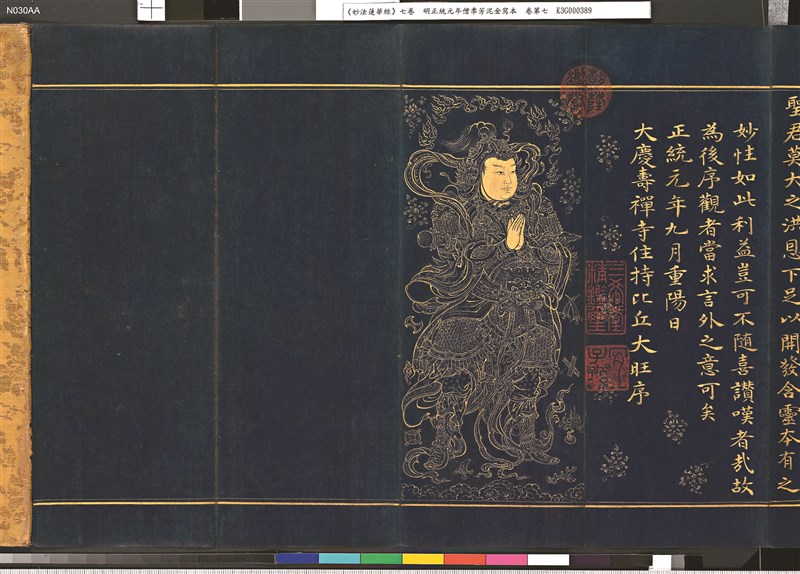 N030AA
《妙法蓮華經》七卷　明正統元年僧季芳泥金寫本　卷第七　K3G000389
聖君莫大之洪恩下足以開發含靈本有之
妙性如此利益豈可不随喜讃嘆者㢤故
為後序觀者當求言外之意可矣
正統元年九月重陽日
大慶壽禪寺住持比丘大旺序
三希堂精鑑璽
宜子孫